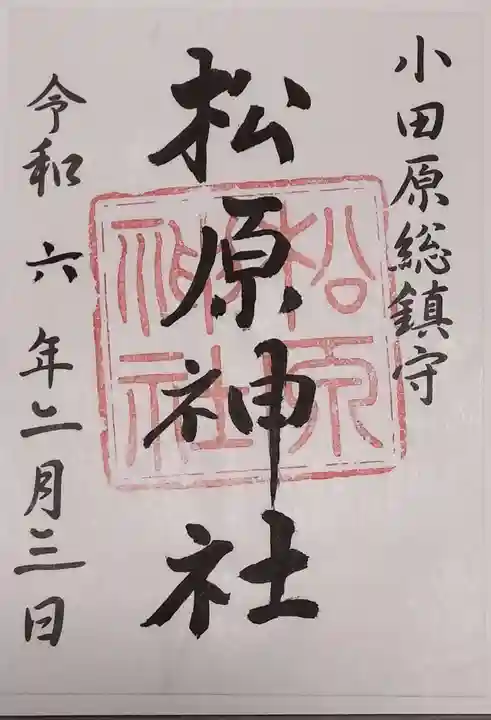 小田原総鎮守
松原神社
松原
神社
令和六年二月三日